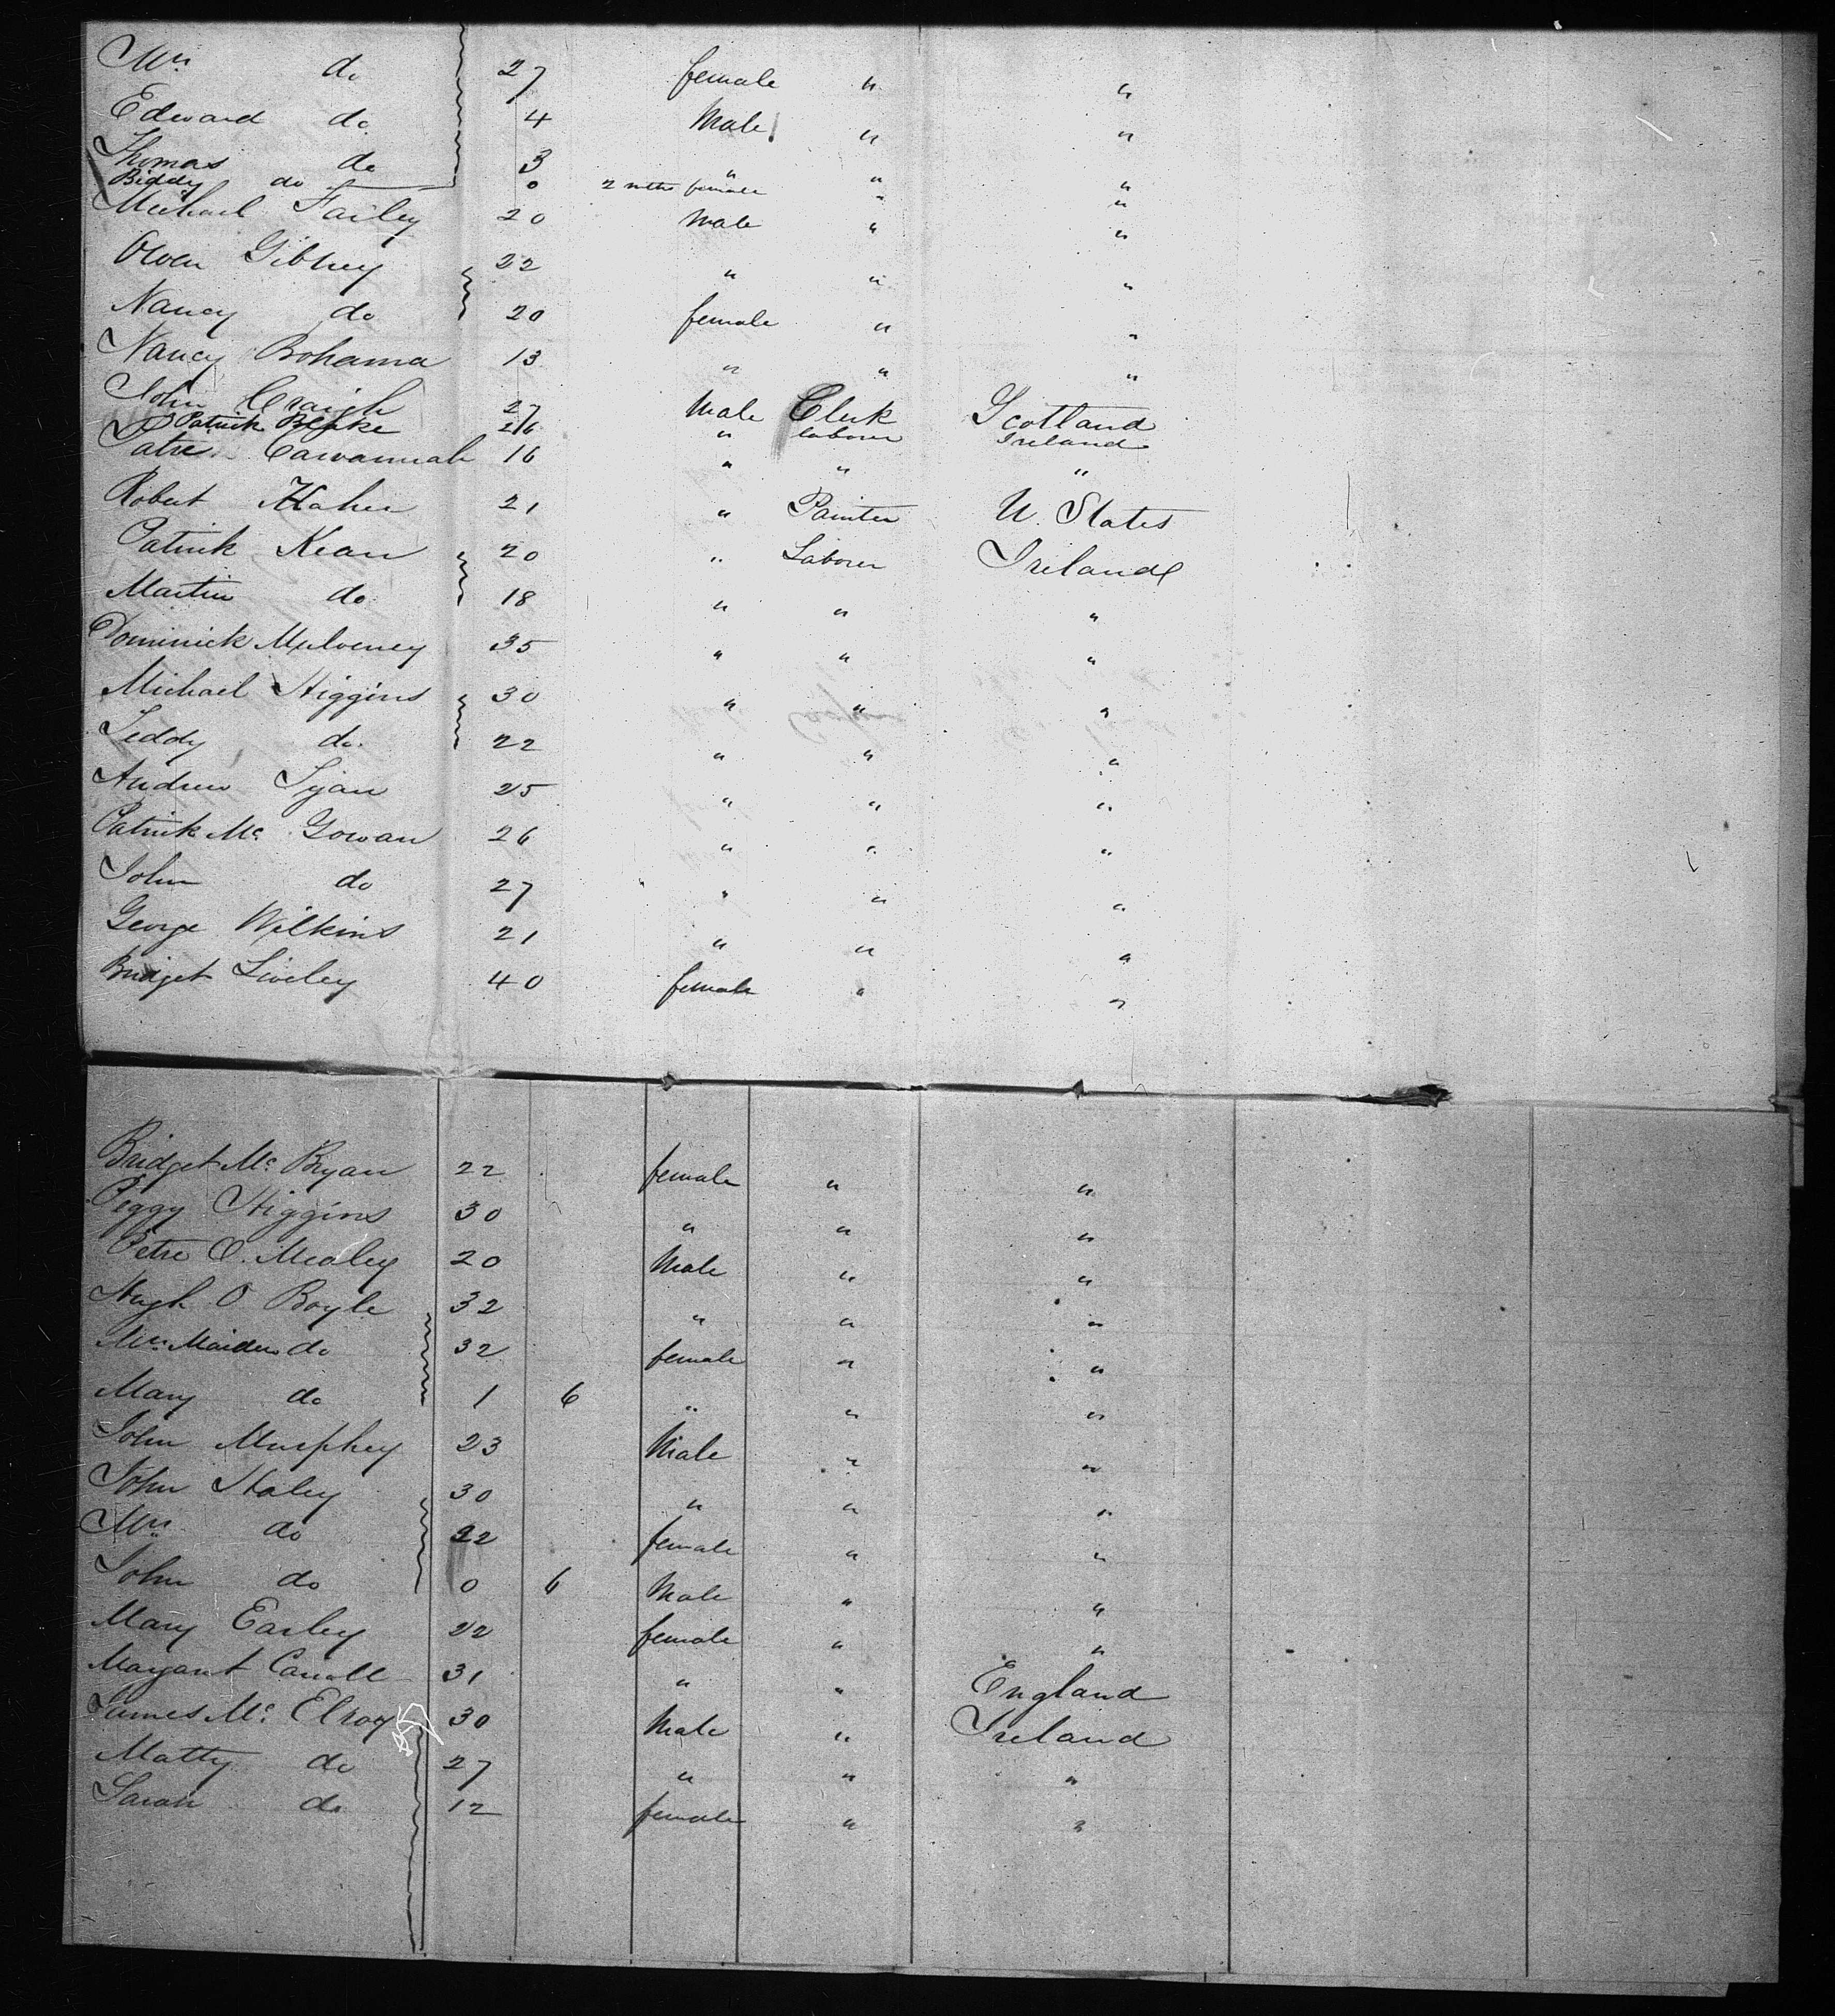 Mrs do 27 female " "
Edward do 4 Male " "
Thomas do 3 " " "
Biddy do 0 2 mths female " "
Michael Farley 20 Male " "
Owen Gibney 22 " " "
Nancy do 20 female " "
Nancy Bohanna 13 " " "
John Craigh 27 Male Clerk Scotland
Patrick Blake 26 " laborer Ireland
Patre Cawannah 16 " " "
Robert Maher 21 " Painter U. States
Patrick Kean 20 " Laborer Ireland
Martin do 18 " " "
Dominick Mulveney 35 " " "
Michael Higgins 30 " " "
Teddy do 22 " " "
Andrew 25 " " "
Patrick Mc Gowan 26 " " "
John do 27 " " "
George Wilkins 21 " " "
Bridget Liveley 40 female " "
Bridget Mc Bryan 22 female " "
Peggy Higgins 30 " " "
Petre O. Mealey 20 Male " "
Hugh O Boyle 32 " " "
Mrs Maiden do 32 female " "
Mary do 1 6 " " "
John Murphey 23 Male " "
John Haley 30 " " "
Mrs do 22 female " "
John do 0 6 Male " "
Mary Earley 22 female " "
Margaret Caroll 31 " " England
James Mc Elroy 30 Male " Ireland
Matty do 27 " " "
Sarah do 12 female " "